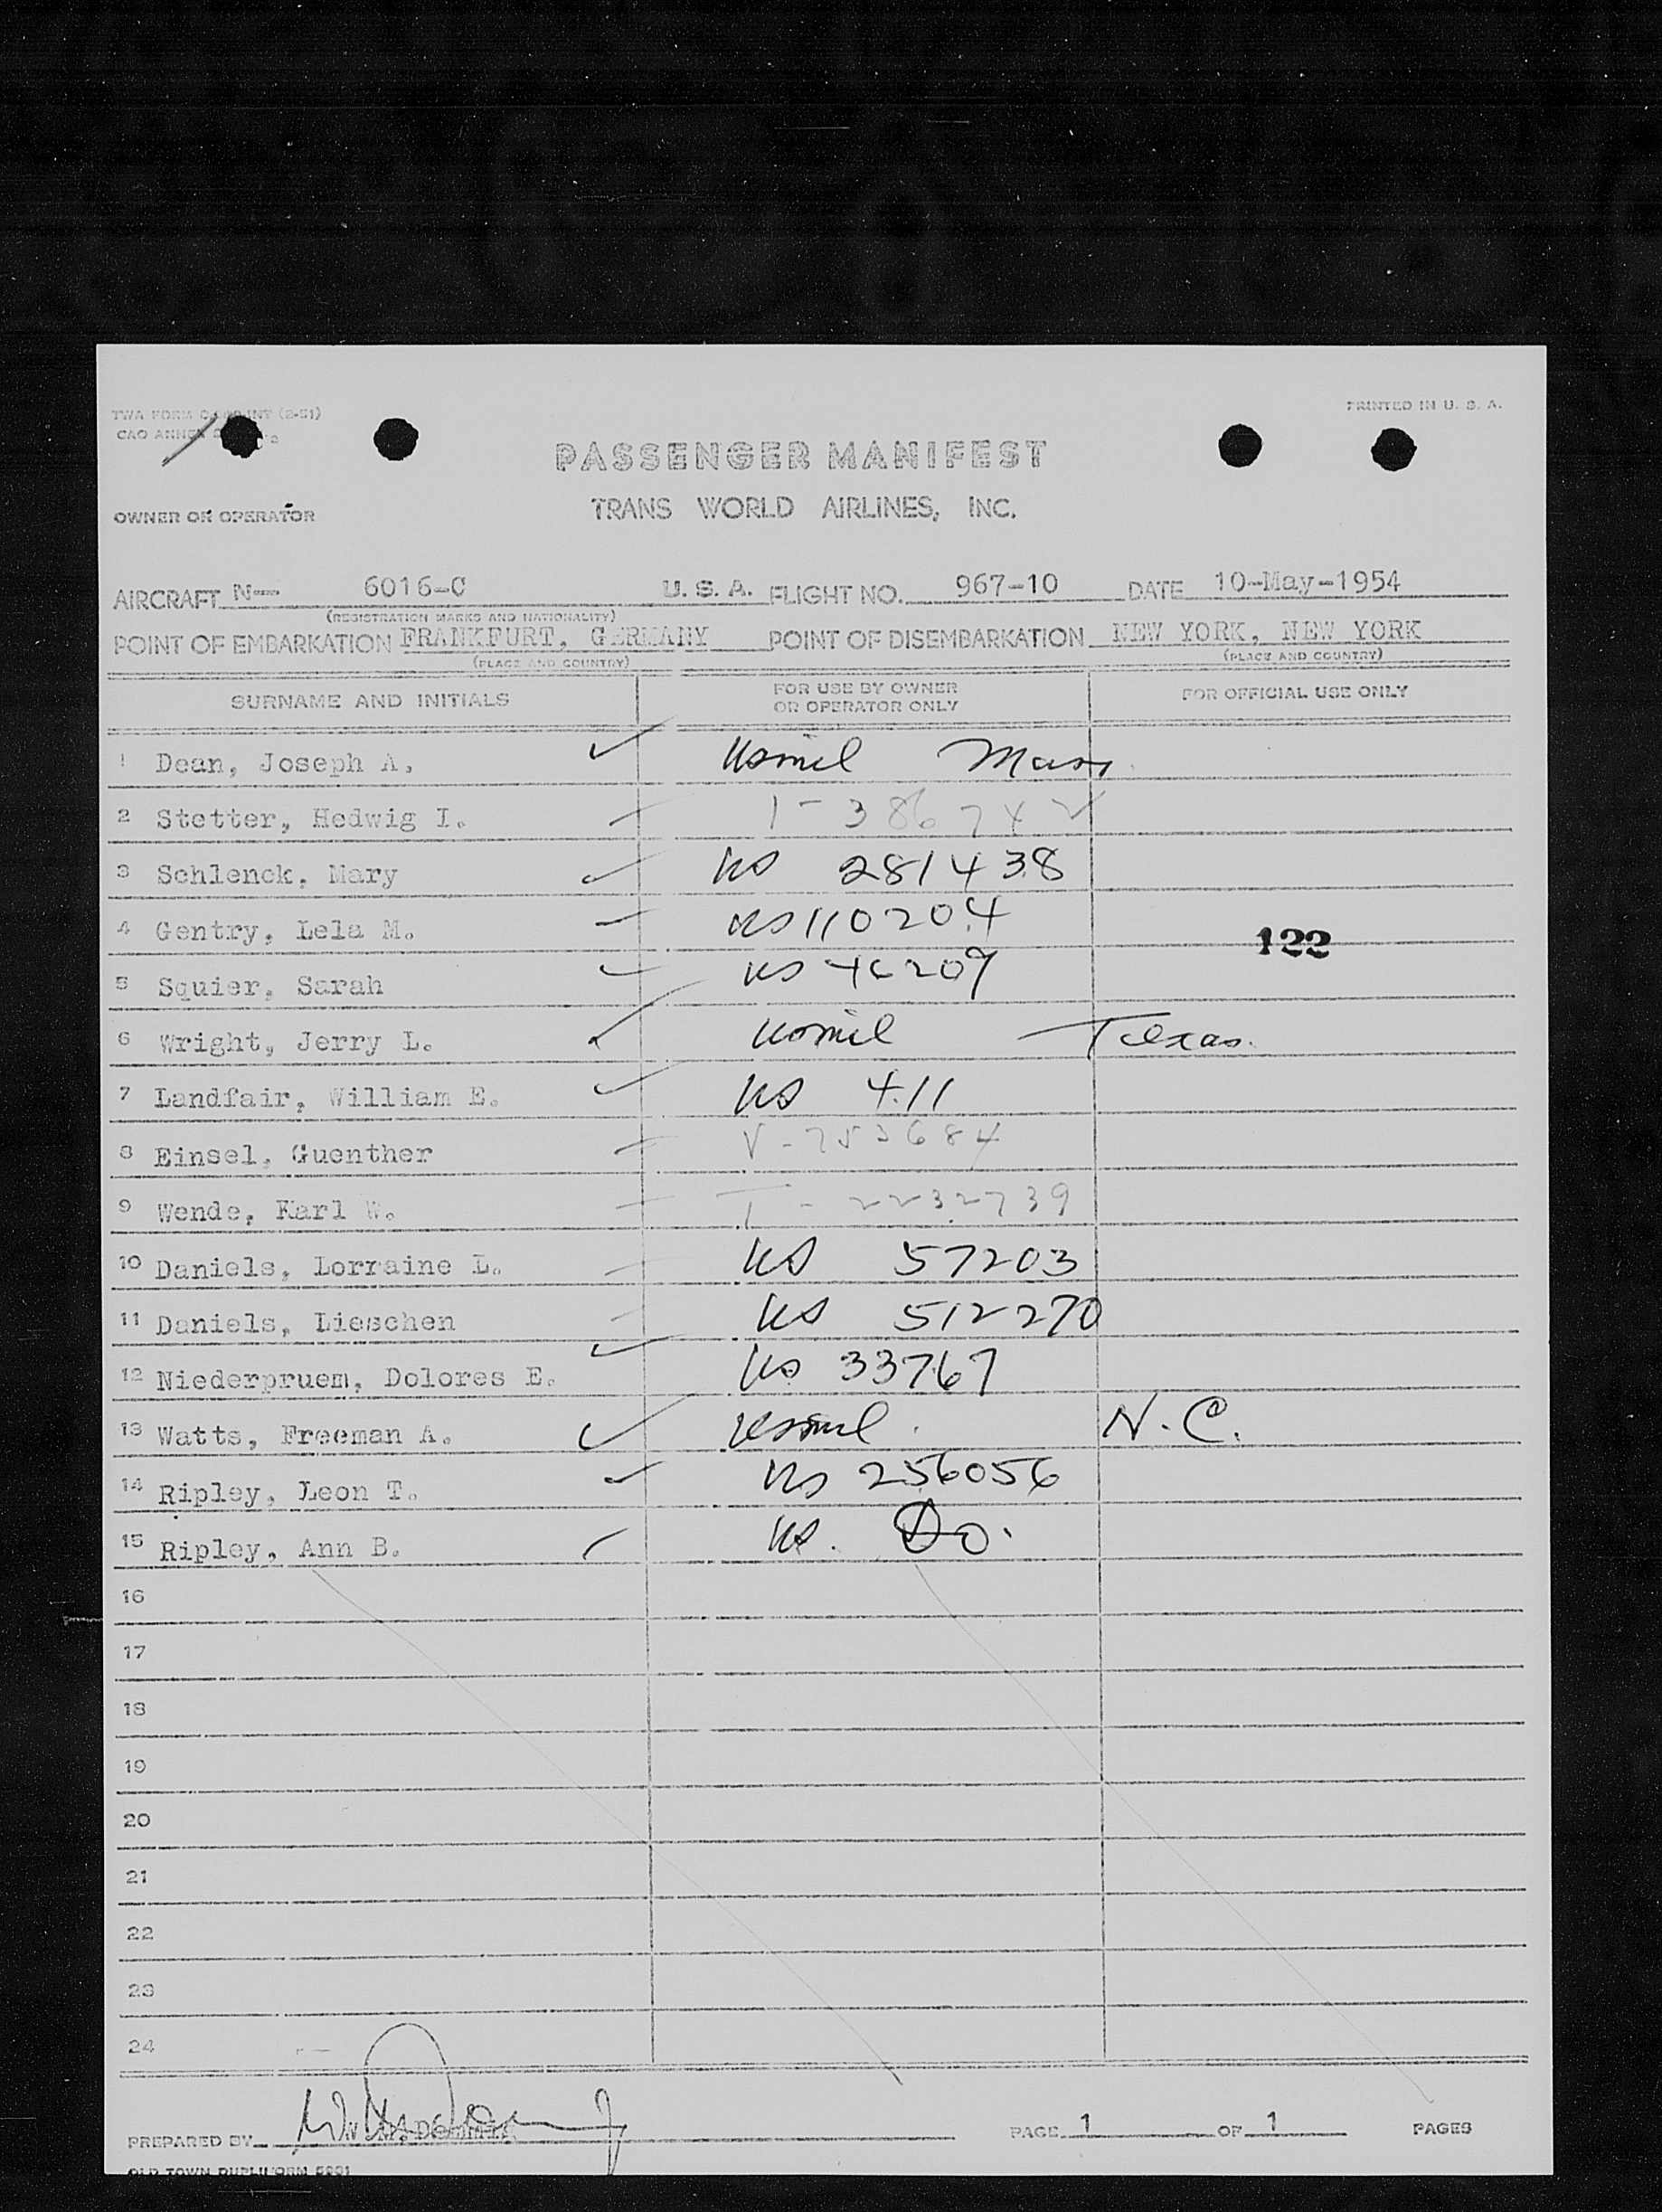 TWA FORM INT (2-51)
PRINTED IN U. S. A.
CAO ANNEX
PASSENGER MANIFEST
OWNER OR OPERATOR TRANS WORLD AIRLINES, INC.
AIRCRAFT N-- 6016-C U. S. A. FLIGHT NO. 967-10 DATE 10-May-1954
(REGISTRATION MARKS AND NATIONALITY)
POINT OF EMBARKATION FRANKFURT, GERMANY POINT OF DISEMBARKATION NEW YORK, NEW YORK
(PLACE AND COUNTRY) (PLACE AND COUNTRY)
SURNAME AND INITIALS FOR USE BY OWNER OR OPERATOR ONLY FOR OFFICIAL USE ONLY
1 Dean, Joseph A. usmil Mass
2 Stetter, Hedwig I. 1-38674
3 Schlenck, Mary US 281438
4 Gentry, Lela M. US 110204
122
5 Squier, Sarah US 46209
6 Wright, Jerry L. usmil Texas.
7 Landfair, William E. US 411
8 Einsel, Guenther V-753684
9 Wende, Karl W. T-2232739
10 Daniels, Lorraine L. US 57203
11 Daniels, Lieschen US 512270
12 Niederpruem, Dolores E. US 33767
13 Watts, Freeman A. usmil. N.C.
14 Ripley, Leon T. US 256056
15 Ripley, Ann B. US. Do.
16
17
18
19
20
21
22
23
24
PREPARED BY PAGE 1 OF 1 PAGES
OLD TOWN